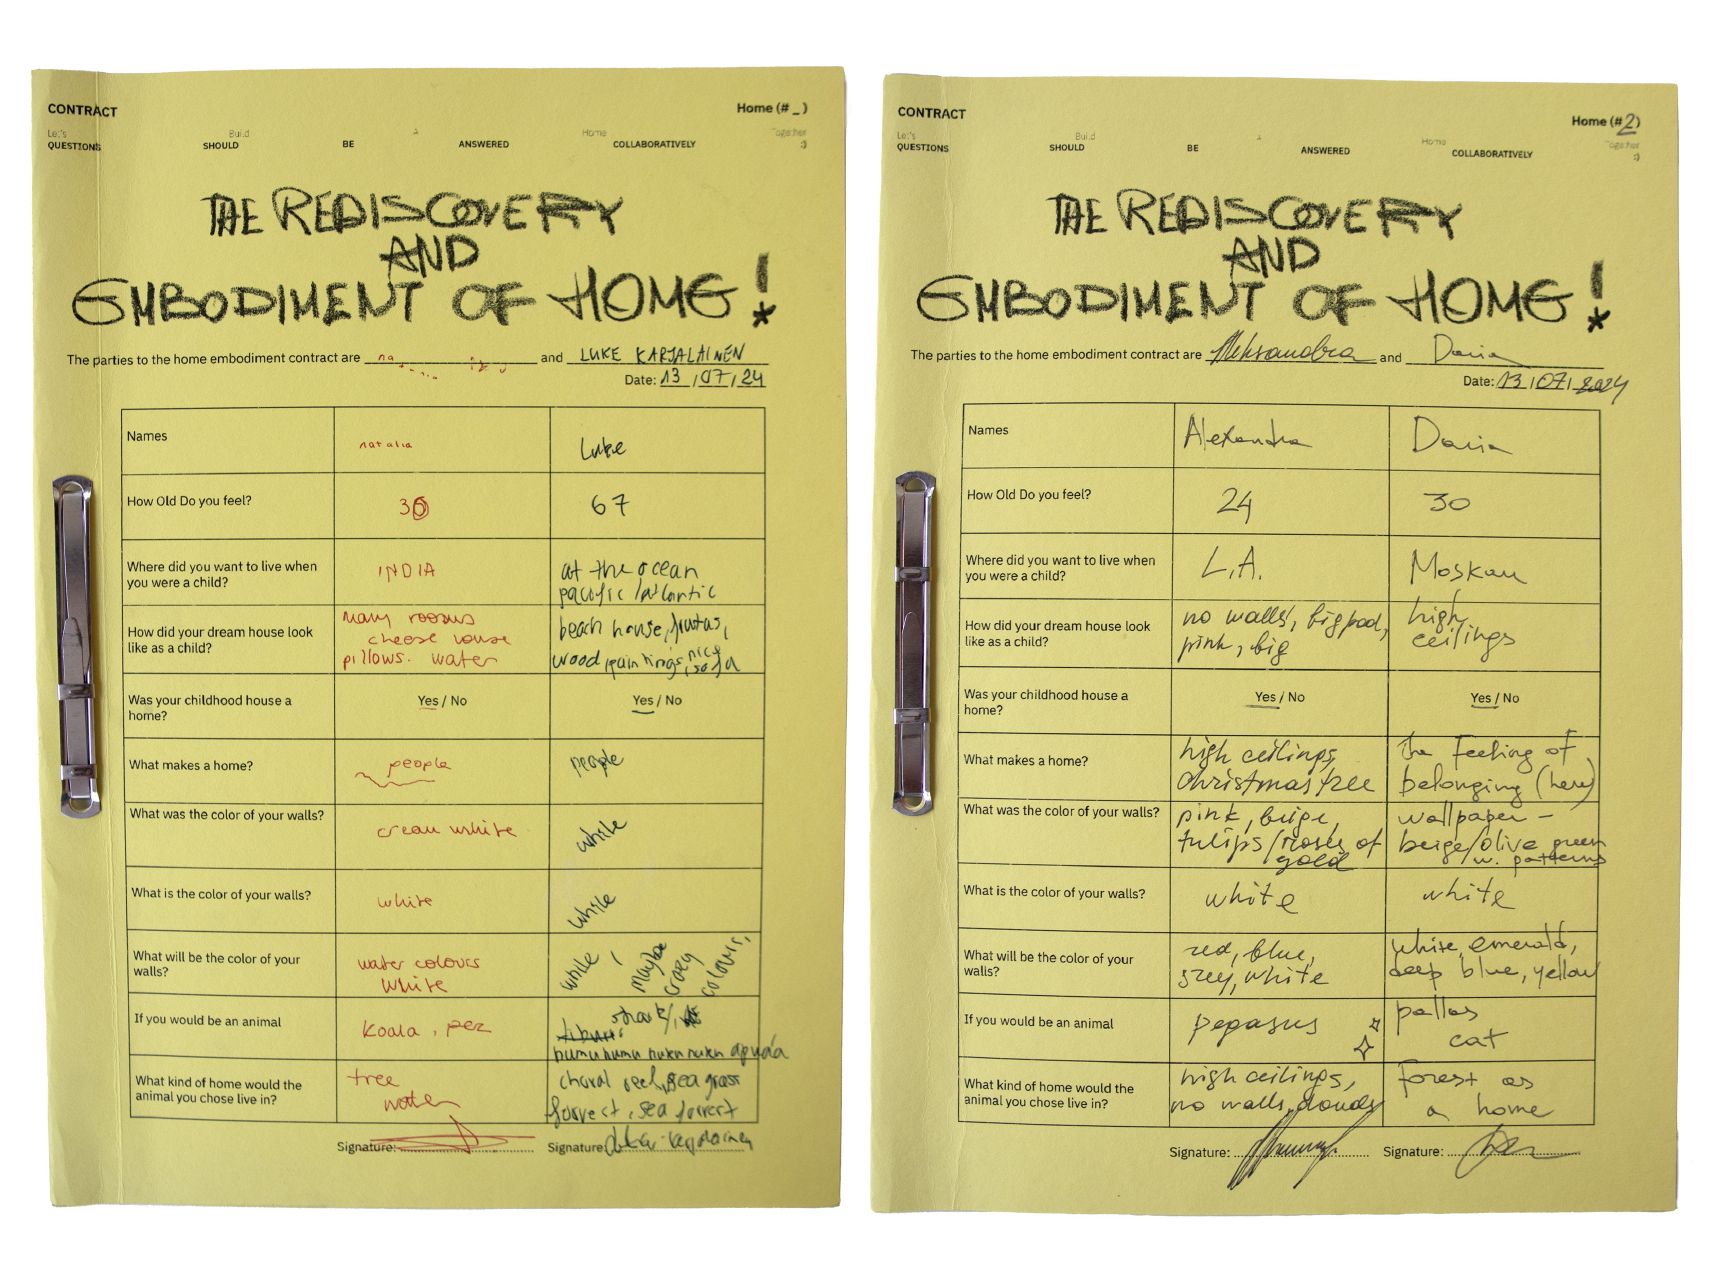 CONTRACT
Home (# _ )
Let's Build a Home Together
QUESTIONS SHOULD BE ANSWERED COLLABORATIVELY :)
THE REDISCOVERY
AND
EMBODIMENT OF HOME!
The parties to the home embodiment contract are and LUKE KARJALAINEN
Date: 13 / 07 / 24
Names natalia Luke
How Old Do you feel? 30 67
Where did you want to live when you were a child? INDIA at the ocean
pacific / atlantic
How did your dream house look like as a child? many rooms
cheese house
pillows. water
beach house, frutas,
wood, paintings, nice sofa
Was your childhood house a home? Yes / No Yes / No
What makes a home? people people
What was the color of your walls? cream white white
What is the color of your walls? white white
What will be the color of your walls? water colours
white
white, maybe crazy colours,
If you would be an animal koala, pez
shark,
humuhumu nuku nuku apuaa
What kind of home would the animal you chose live in? tree
water
choral reef, sea grass
forrest, sea forrest
Signature: Signature:
CONTRACT
Home (# 2)
Let's Build a Home Together
QUESTIONS SHOULD BE ANSWERED COLLABORATIVELY :)
THE REDISCOVERY
AND
EMBODIMENT OF HOME!
The parties to the home embodiment contract are Aleksandra and Daria
Date: 13 / 07 / 2024
Names Alexandra Daria
How Old Do you feel? 24 30
Where did you want to live when you were a child? L.A. Moskau
How did your dream house look like as a child? no walls, big pool,
pink, big
high
ceilings
Was your childhood house a home? Yes / No Yes / No
What makes a home? high ceilings,
christmas tree
the feeling of
belonging (here)
What was the color of your walls? pink, beige,
tulips / roses of
gold
wallpaper –
beige/olive green
w. patterns
What is the color of your walls? white white
What will be the color of your walls? red, blue,
grey, white
white, emerald,
deep blue, yellow
If you would be an animal pegasus
pallas
cat
What kind of home would the animal you chose live in? high ceilings,
no walls, clouds
forest as
a home
Signature: Signature: